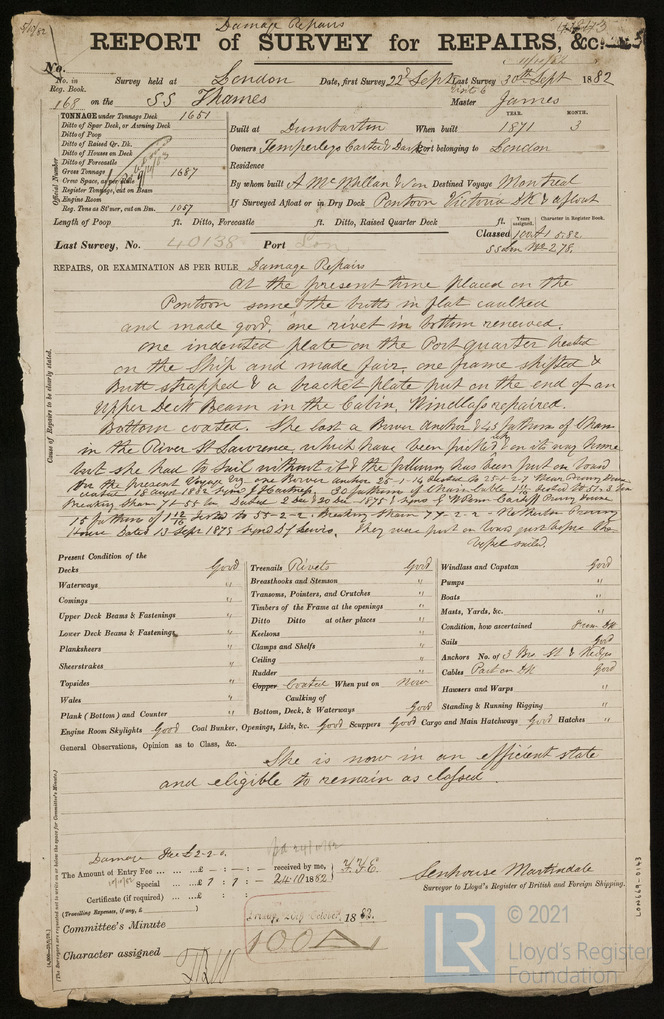 5/10/82
Damage Repairs
REPORT of SURVEY for REPAIRS, &c.
No.
No. in Reg. Book.
Survey held at London Date, first Survey 22d Sept Last Survey 30th Sept 1882
168 on the SS Thames Master James
TONNAGE under Tonnage Deck 1651
Ditto of Spar Deck, or Awning Deck
Ditto of Poop
Ditto of Raised Qr. Dk.
Ditto of Houses on Deck
Ditto of Forecastle
Gross Tonnage 1687
Crew Space, as per Rule
Register Tonnage, cut on Beam
Engine Room
Reg. Tons as St'mer, cut on Bm. 1057
Official Number
YEAR. MONTH.
Built at Dumbarton When built 1871 3
Owners Temperleys Carter & Darke Port belonging to London
Residence
By whom built A McMillan & Son Destined Voyage Montreal
If Surveyed Afloat or in Dry Dock Pontoon Victoria Dk & afloat
Length of Poop ft. Ditto, Forecastle ft. Ditto, Raised Quarter Deck ft.
Years assigned. Character in Register Book.
Classed 100A1 5.82
SS Lon No 2, 78.
Last Survey, No. 40138 Port Lon
REPAIRS, OR EXAMINATION AS PER RULE Damage Repairs
Cause of Repairs to be clearly stated.
At the present time placed on the
Pontoon some of the butts in flat caulked
and made good, one rivet in bottom renewed,
one indented plate on the Port quarter heated
on the Ship and made fair, one frame shifted &
Butt strapped & a bracket plate put on the end of an
Upper Deck Beam in the Cabin, Windlass repaired.
Bottom coated. She lost a Bower Anchor & 45 fathoms of Chain
in the River St Lawrence, which have been picked up & on its way home
but she had to sail without it & the following has been put on board
for the present Voyage viz one Bower anchor 25-1-14 tested to 25-1-2-7
dated 18 augt 1882 30 fathoms of Chain Cable
Breaking Strain
15 fathoms of 1 12/16 tested to 55-2-2, Breaking Strain 77-2-2 Netherton Proving
House Dated 13 Sept 1875 signed They were put on board just before the
vessel sailed.
Present Condition of the
Decks Good
Waterways "
Comings "
Upper Deck Beams & Fastenings "
Lower Deck Beams & Fastenings "
Planksheers "
Sheerstrakes "
Topsides "
Wales "
Plank (Bottom) and Counter "
Treenails Rivets Good
Breasthooks and Stemson "
Transoms, Pointers, and Crutches "
Timbers of the Frame at the openings "
Ditto Ditto at other places "
Keelsons "
Clamps and Shelfs "
Ceiling "
Rudder "
Copper Coated When put on Now
Caulking of
Bottom, Deck, & Waterways Good
Windlass and Capstan Good
Pumps "
Boats "
Masts, Yards, &c. "
Condition, how ascertained From Dk
Sails Good
Anchors No. of 3 Brs St & Kedges
Cables Part on Dk Good
Hawsers and Warps "
Standing & Running Rigging "
Engine Room Skylights Good Coal Bunker, Openings, Lids, &c. Good Scuppers Good Cargo and Main Hatchways Good Hatches "
General Observations, Opinion as to Class, &c.
She is now in an efficient state
and eligible to remain as classed.
(The Surveyors are requested not to write on or below the space for Committee's Minute.)
Damage Fee £2-2-0.
The Amount of Entry Fee ... ... £ - : - : - received by me,
Special ... £ 7 : 7 : - 24.10 1882
Certificate (if required) ... £ : :
(Travelling Expenses, if any, £ )
Committee's Minute Friday, 20th October, 1882.
Character assigned 100A1
Senhouse Martindale
Surveyor to Lloyd's Register of British and Foreign Shipping.
LON669-0143
LR
© 2021
Lloyd's Register
Foundation